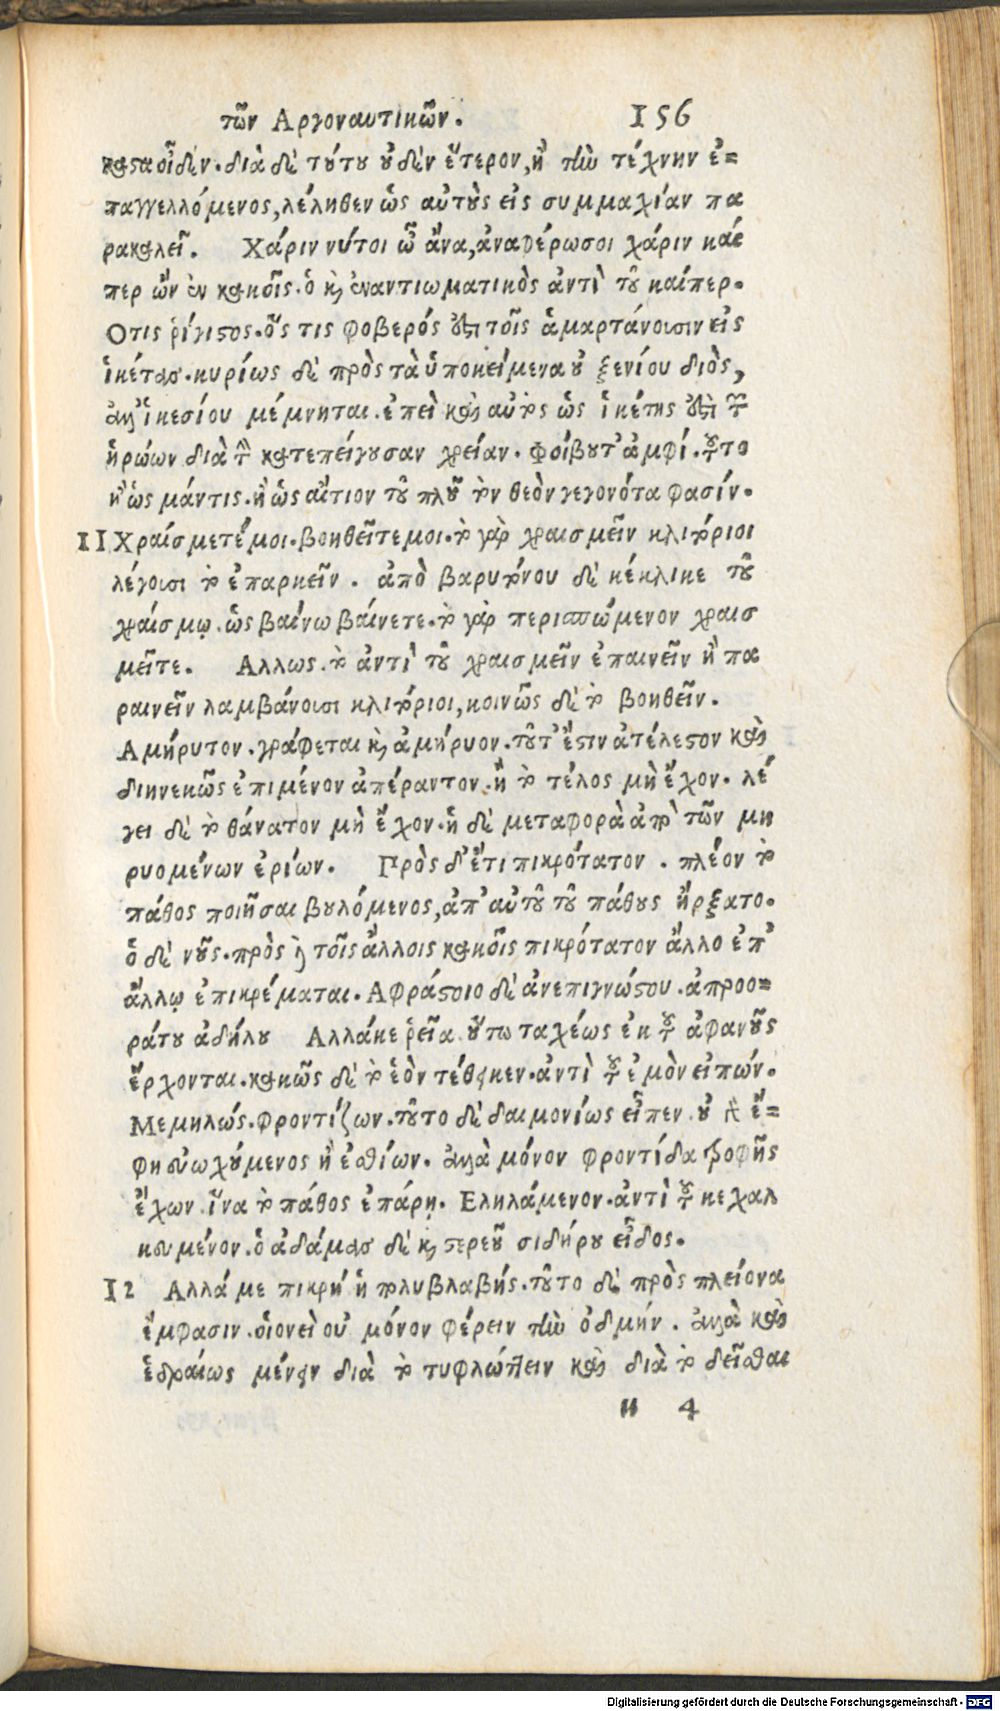 τῶν Αργοναυτικῶν. 156
κατοῖδεν. διὰ δὲ τύτυ ὐδὲν ἕτερον, ἢ τὴν τέχνην ἐ=
παγγελλόμενος, λέληθεν ὡς αὐτὺς εἰς συμμαχίαν πα
ρακαλεῖ. Χάριν νύτοι ὦ ἄνα, ἀναφέρωσοι χάριν καί
περ ὢν ἐν κακοῖς. ὁ καὶ ἐναντιωματικὸς ἀντὶ τῦ καίπερ.
Οτις ῥίγιστος. ὅς τις φοβερός ἐπὶ τοῖς ἁμαρτάνουσιν εἰς
ἱκέτας. κυρίως δὲ πρὸς τὰ ὑποκείμενα ὐ ξενίου διὸς,
ἀλλ' ἱκεσίου μέμνηται. ἐπεὶ καὶ αὐτὸς ὡς ἱκέτης ἐπὶ τ
ἡρώων διὰ τ κατεπείγυσαν χρείαν. Φοίβυτ' ἀμφί. ὗτο
ἢ ὡς μάντις. ἢ ὡς αἴτιον τῦ πλῦ τὸν θεὸν γεγονότα φασίν.
11 Χραίσμετέ μοι. βοηθεῖτε μοι. τὸ γὰρ χραισμεῖν κλιτόριοι
λέγουσι τὸ ἐπαρκεῖν. ἀπὸ βαρυτόνου δὲ κέκλικε τῦ
χραίσμω. ὡς βαίνω βαίνετε. τὸ γὰρ περισπώμενον χραισ
μεῖτε. Αλλως. τὸ ἀντὶ τῦ χραισμεῖν ἐπαινεῖν ἢ πα
ραινεῖν λαμβάνουσι κλιτόριοι, κοινῶς δὲ τὸ βοηθεῖν.
Αμήρυτον. γράφεται καὶ ἀμήρυον. τῦτ' ἔστιν ἀτέλεστον καὶ
διηνεκῶς ἐπιμένον ἀπέραντον. ἢ τὸ τέλος μὴ ἔχον. λέ
γει δὲ τὸ θάνατον μὴ ἔχον. ἡ δὲ μεταφορὰ ἀπὸ τῶν μη
ρυομένων ἐρίων. Πρὸς δ' ἔτι πικρότατον. πλέον τὸ
πάθος ποιῆσαι βυλόμενος, ἀπ' αὐτῦ τῦ πάθυς ἤρξατο.
ὁ δὲ νῦς. πρὸς τοῖς ἄλλοις κακοῖς πικρότατον ἄλλο ἐπ'
ἄλλῳ ἐπικρέμαται. Αφράστοιο δὲ ἀνεπιγνώστου. ἀπροο=
ράτυ ἀδήλυ Αλλάκε ῥεῖα. ὕτω ταχέως ἐκ τ ἀφανῦς
ἔρχονται. κακῶς δὲ τὸ ἑὸν τέθηκεν. ἀντὶ τ ἐμὸν εἰπών.
Μεμηλώς. φροντίζων. τῦτο δὲ δαιμονίως εἶπεν. ὐ γὰρ ἔ=
φη εὐωχύμενος ἢ ἐσθίων. ἀλλὰ μόνον φροντίδα τροφῆς
ἔχων. ἵνα τὸ πάθος ἐπάρῃ. Εληλάμενον. ἀντὶ τ κεχαλ
κευμένον. ὁ ἀδάμας δὲ καὶ στερεῦ σιδήρυ εἶδος.
12 Αλλά με πικρή ἡ πολυβλαβής. τῦτο δὲ πρὸς πλείονα
ἔμφασιν. οἱονεὶ οὐ μόνον φέρειν τὴν ὀδμήν. ἀλλὰ καὶ
ἑδραίως μένειν διὰ τὸ τυφλώττειν καὶ διὰ τὸ δεῖσθαι
u 4
Digitalisierung gefördert durch die Deutsche Forschungsgemeinschaft - DFG